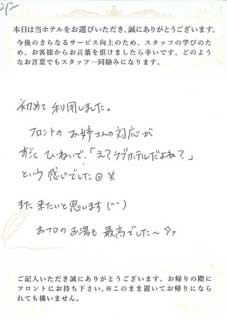 212
本日は当ホテルをお選びいただき、誠にありがとうございます。
今後のさらなるサービス向上のため、スタッフの学びのため、お客様からお言葉を頂けましたら幸いです、どのようなお言葉でもスタッフ一同励みになります。
初めて利用しました。
フロントの お姉さんの対応が
すごく ていねいで、「えっ?ラブホテルだよね?」
という 感じでした
また 来たいと思います(^^)
おフロのお湯も 最高でした〜
ご記入いただき誠にありがとうございます、お帰りの際に
フロントにお持ち下さい。※このまま置いてお帰りになられても構いません。